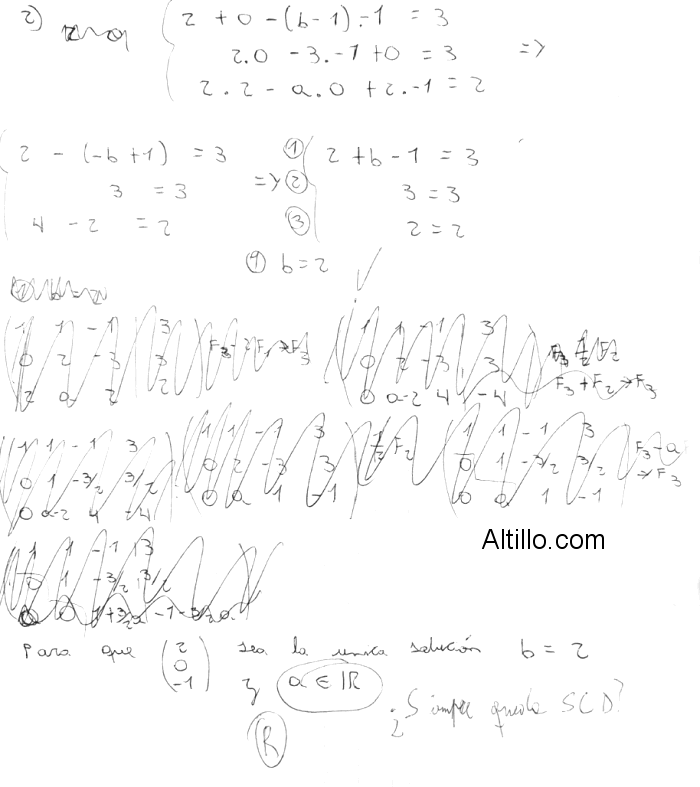 2)
2 + 0 - (b-1).-1 = 3
2.0 - 3.-1 + 0 = 3 =>
2.2 - a.0 + 2.-1 = 2
2 - (-b+1) = 3
3 = 3 =>
4 - 2 = 2
① 2 + b - 1 = 3
② 3 = 3
③ 2 = 2
① b = 2 ✓
1 1 -1 3
0 2 -3 3
2 a 2 2
F3 - 2F1 → F3
1 1 -1 3
0 2 -3 3
0 a-2 4 -4
F3 + F2 → F3
1 1 -1 3
0 1 -3/2 3/2
0 a-2 4 -4
1 1 -1 3
0 2 -3 3
0 a 1 -1
1 1 -1 3
0 1 -3/2 3/2
0 0 1 -1
Altillo.com
1 1 -1 3
0 1 -3/2 3/2
0 0 1+3/2a -1-3/2a
Para que (2 0 -1) sea la unica solución b = 2
y a ∈ IR
¿Siempre queda SCD?
R